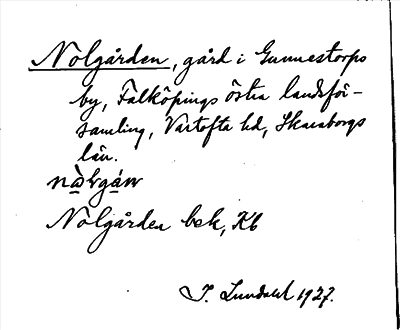 Nolgården, gård i Gunnestorps
by, Falköpings östra landsför-
samling, Vartofta hd, Skaraborgs
län.
Nolgården bek, Kb
I. Lundahl 1927.